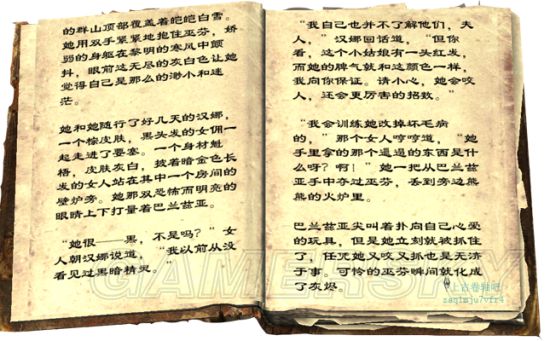 的群山顶部覆盖着皑皑白雪。
她用双手紧紧地抱住巫芬，娇
弱的身躯在黎明的寒风中颤
抖，眼前这无尽的灰白色让她
觉得自己是那么的渺小和迷
茫。
她和她随行了好几天的汉娜，
一个棕皮肤，黑头发的女佣一
起走进了要塞。一个身材魁
梧，皮肤灰白，披着暗金色长
发的女人站在其中一个房间的
壁炉旁。她那双恐怖而明亮的
眼睛上下打量着巴兰兹亚。
“她很——黑，不是吗？”女
人朝汉娜说道，“我以前从没
看见过黑暗精灵。
“我自己也并不了解他们，夫
人，”汉娜回话道，“但你
看，这个小姑娘有一头红发，
而她的脾气就和这颜色一样，
我向你保证。请小心，她会咬
人，还会更厉害的招数。”
“我会训练她改掉坏毛病
的，”那个女人哼哼道，“她
手里拿的那个邋遢的东西是什
么呀？啊！”她一把从巴兰兹亚
手中夺过巫芬，丢到旁边熊
熊的火炉里。
巴兰兹亚尖叫着扑向自己心爱
的玩具，但是她立刻就被抓住
了，任凭她又咬又抓也是无济
于事。可怜的巫芬瞬间就化成
了灰烬。
上古卷轴吧
zaq1mju7vfr4
GAMERSKY